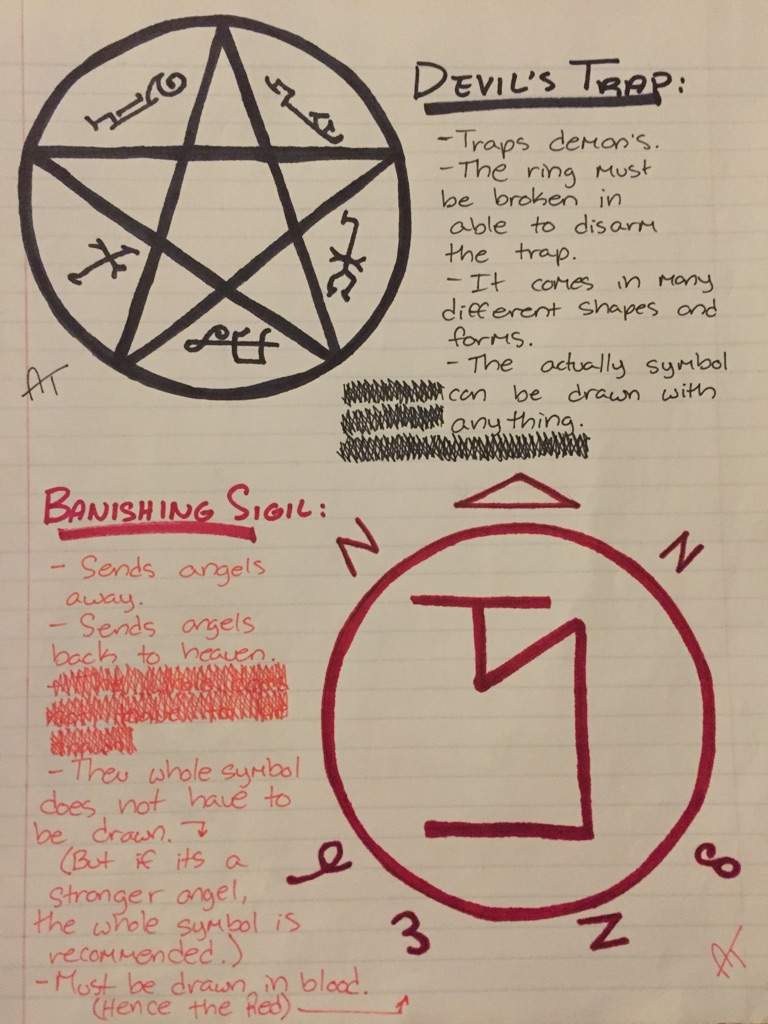 DEVIL'S TRAP:
- Traps demon's.
- The ring must
be broken in
able to disarm
the trap.
- It comes in many
different shapes and
forms.
- The actually symbol
can be drawn with
anything.
AT
BANISHING SIGIL:
- Sends angels
away.
- Sends angels
back to heaven.
- Theu whole symbol
does not have to
be drawn.
(But if its a
stronger angel,
the whole symbol is
recommended.)
- Must be drawn in blood.
(Hence the Red)
AT